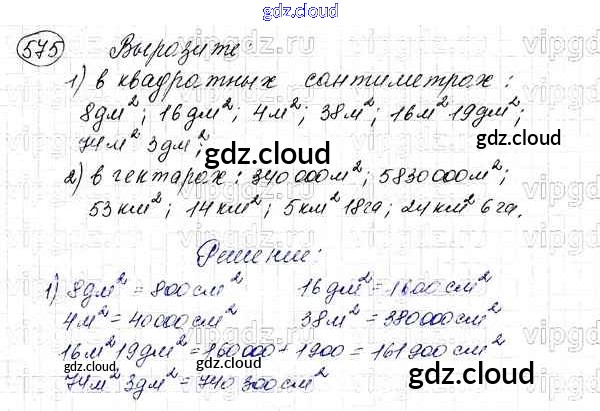 gdz.cloud
575 Выразите:
1) в квадратных сантиметрах:
8дм²; 16дм²; 4м²; 38м²; 16м² 19дм²;
74м² 3дм²;
gdz.cloud
2) в гектарах: 340 000м²; 5830 000м²;
53км²; 14км²; 5км² 18га; 24км² 6га.
Решение:
1) 8дм² = 800см² 16дм² = 1600см²
4м² = 40000см² 38м² = 380000см²
16м² 19дм² = 160000 + 1900 = 161900см²
74м² 3дм² = 740 300см²
gdz.cloud
gdz.cloud